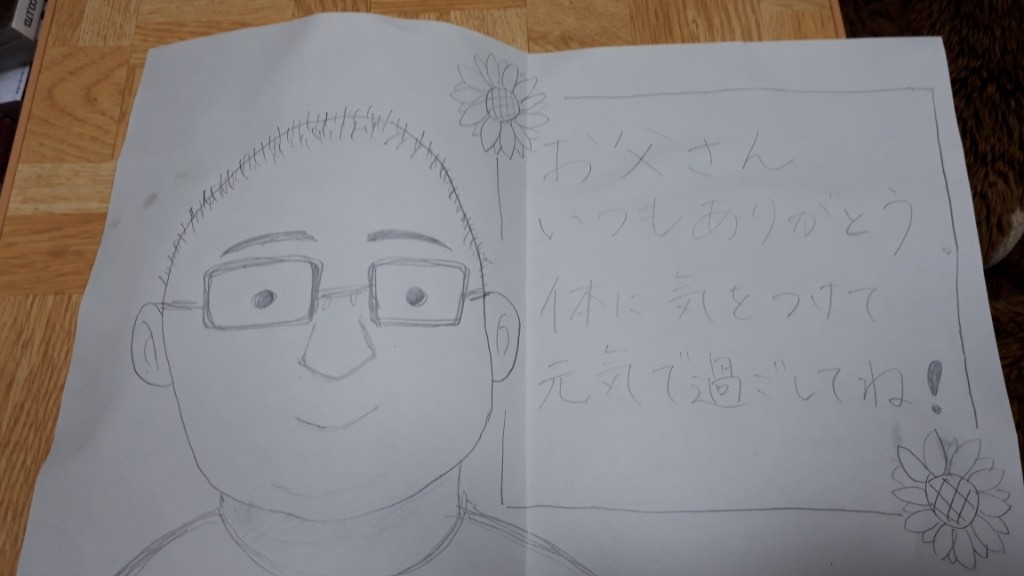 お父さん
いつもありがとう。
体に気をつけて
元気で過ごしてね!